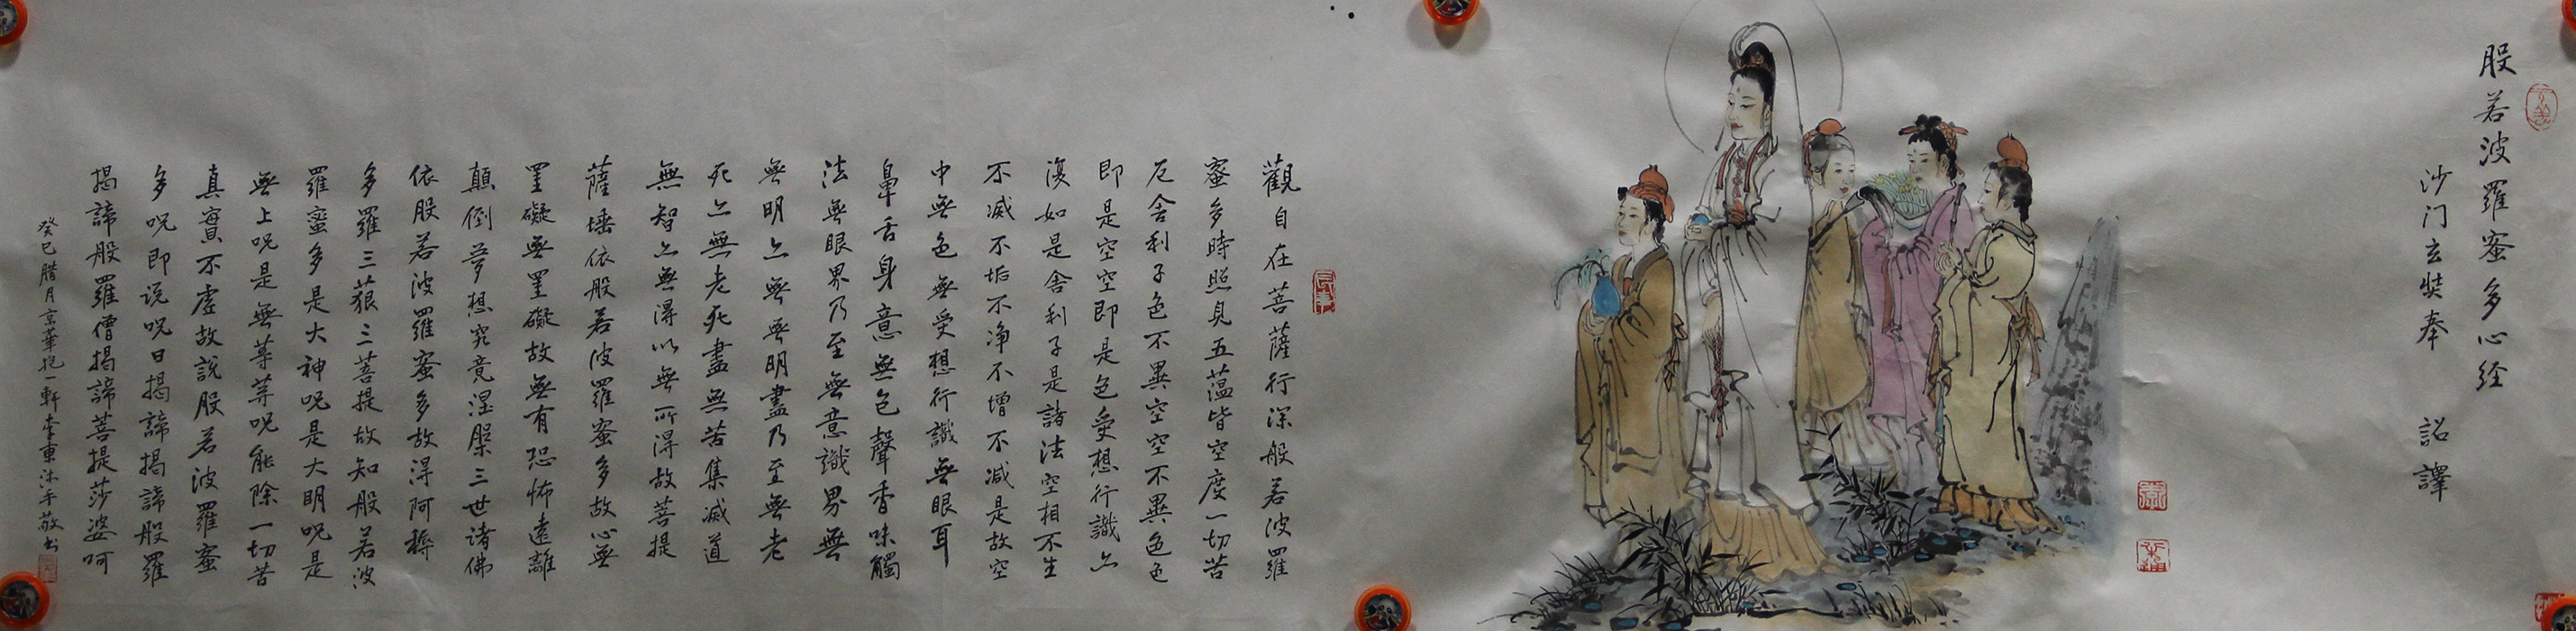 般若波羅蜜多心经
沙门玄奘奉 詔譯
觀自在菩薩行深般若波羅
蜜多時照見五蕴皆空度一切苦
厄舍利子色不異空空不異色色
即是空空即是色受想行識亦
復如是舍利子是諸法空相不生
不滅不垢不净不增不减是故空
中無色無受想行識無眼耳
鼻舌身意無色聲香味觸
法無眼界乃至無意識界無
無明亦無無明盡乃至無老
死亦無老死盡無苦集滅道
無智亦無得以無所得故菩提
薩埵依般若波羅蜜多故心無
罣礙無罣礙故無有恐怖遠離
顛倒夢想究竟涅槃三世诸佛
依般若波羅蜜多故得阿耨
多羅三藐三菩提故知般若波
羅蜜多是大神呪是大明呪是
無上呪是無等等呪能除一切苦
真實不虚故說般若波羅蜜
多呪即说呪曰揭諦揭諦般羅
揭諦般羅僧揭諦菩提莎婆呵
癸巳腊月京華抱一軒李東沐手敬书